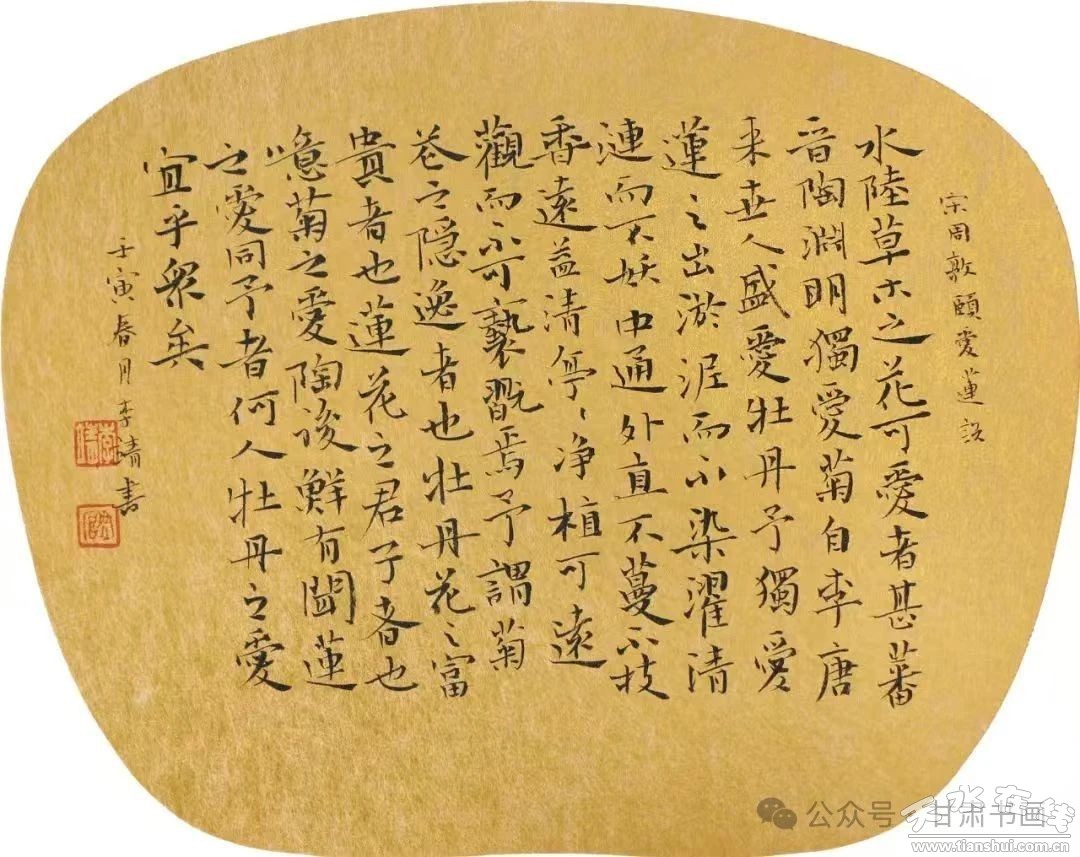 宋周敦頤愛蓮説
水陸草木之花可愛者甚蕃
晉陶淵明獨愛菊自李唐
来世人盛愛牡丹予獨愛
蓮之出淤泥而不染濯清
漣而不妖中通外直不蔓不枝
香遠益清亭〻净植可遠
觀而不可褻翫焉予謂菊
花之隱逸者也牡丹花之富
貴者也蓮花之君子者也
噫菊之愛陶後鮮有聞蓮
之愛同予者何人牡丹之愛
宜乎眾矣
壬寅春月李書
公众号·甘肃书画
天水在线
www.tianshui.com.cn